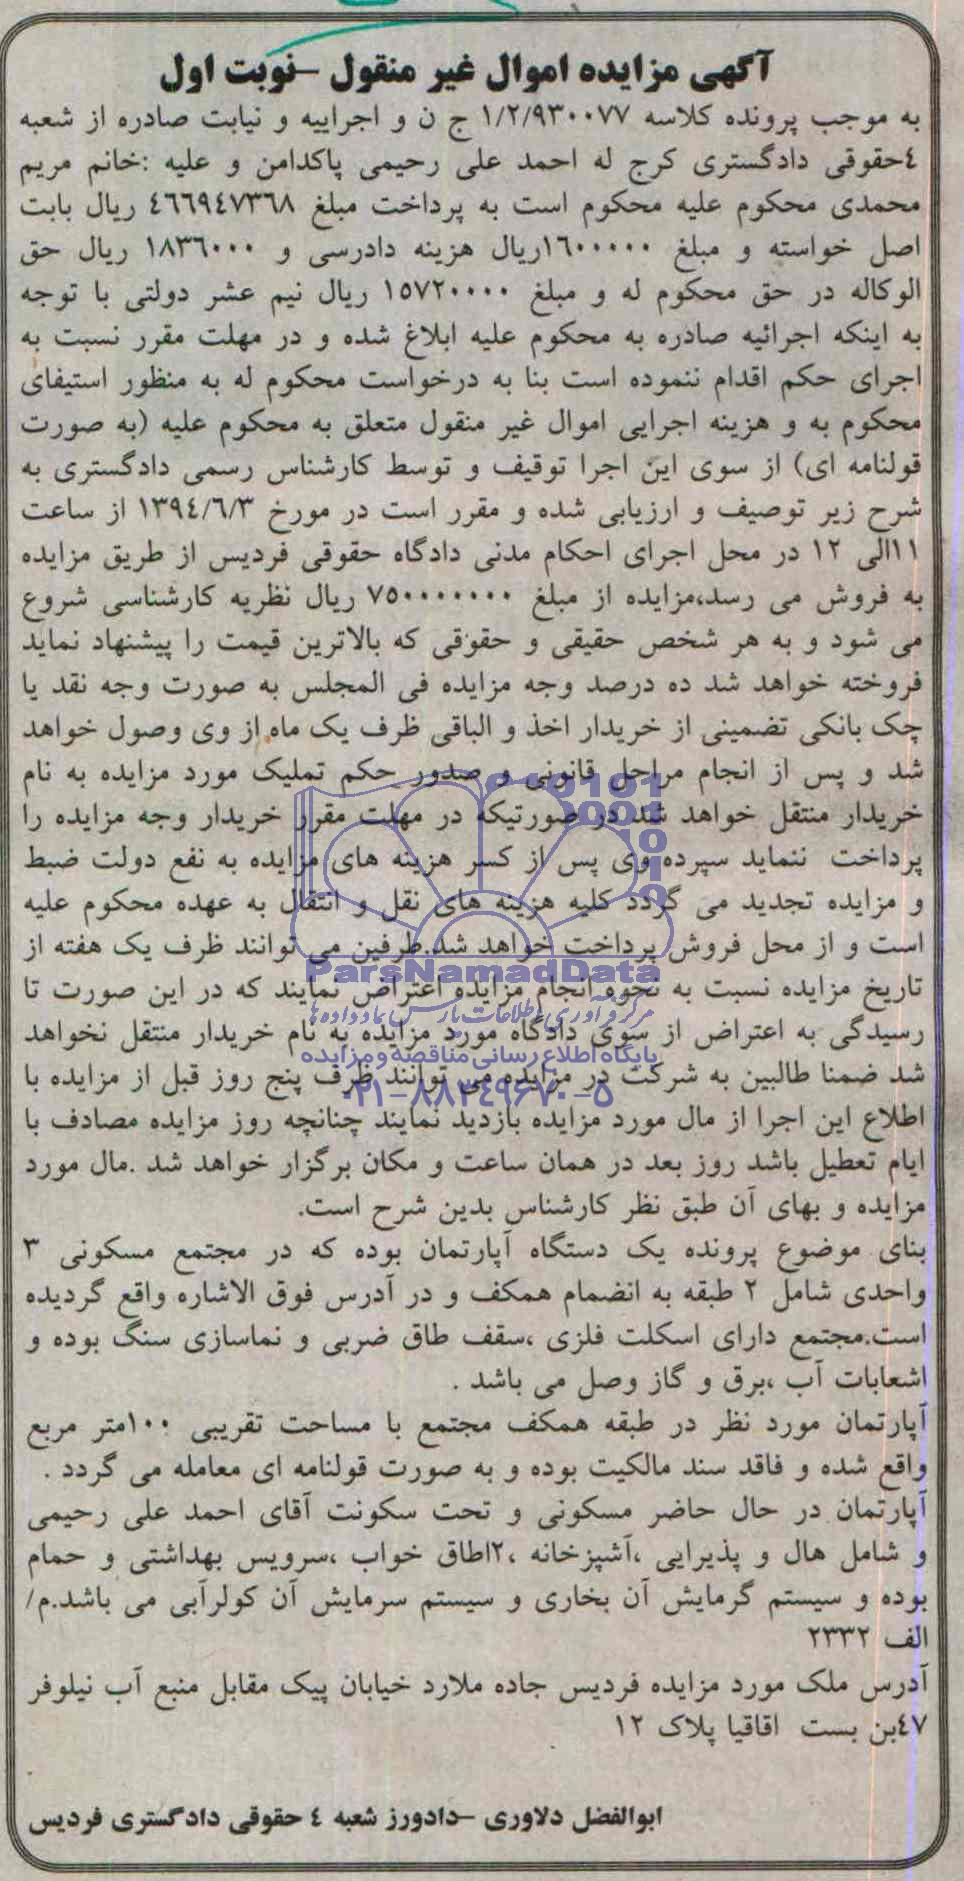 آگهی مزایده اموال غیر منقول –نوبت اول
به موجب پرونده کلاسه ۱/۲/۹۳۰۰۷۷ ج ن و اجراییه و نیابت صادره از شعبه
٤حقوقی دادگستری کرج له احمد علی رحیمی پاکدامن و علیه :خانم مریم
محمدی محکوم علیه محکوم است به پرداخت مبلغ ٤٦٦٩٤٧٣٦٨ ریال بابت
اصل خواسته و مبلغ ۱٦۰۰۰۰۰ریال هزینه دادرسی و ۱۸۳٦۰۰۰ ریال حق
الوکاله در حق محکوم له و مبلغ ۱۵۷۲۰۰۰۰ ریال نیم عشر دولتی با توجه
به اینکه اجرائیه صادره به محکوم علیه ابلاغ شده و در مهلت مقرر نسبت به
اجرای حکم اقدام ننموده است بنا به درخواست محکوم له به منظور استیفای
محکوم به و هزینه اجرایی اموال غیر منقول متعلق به محکوم علیه (به صورت
قولنامه ای) از سوی این اجرا توقیف و توسط کارشناس رسمی دادگستری به
شرح زیر توصیف و ارزیابی شده و مقرر است در مورخ ۱۳۹٤/٦/۳ از ساعت
۱۱الی ۱۲ در محل اجرای احکام مدنی دادگاه حقوقی فردیس از طریق مزایده
به فروش می رسد،مزایده از مبلغ ۷۵۰۰۰۰۰۰۰ ریال نظریه کارشناسی شروع
می شود و به هر شخص حقیقی و حقوقی که بالاترین قیمت را پیشنهاد نماید
فروخته خواهد شد ده درصد وجه مزایده فی المجلس به صورت وجه نقد یا
چک بانکی تضمینی از خریدار اخذ و الباقی ظرف یک ماه از وی وصول خواهد
شد و پس از انجام مراحل قانونی و صدور حکم تملیک مورد مزایده به نام
خریدار منتقل خواهد شد در صورتیکه در مهلت مقرر خریدار وجه مزایده را
پرداخت ننماید سپرده وی پس از کسر هزینه های مزایده به نفع دولت ضبط
و مزایده تجدید می گردد کلیه هزینه های نقل و انتقال به عهده محکوم علیه
است و از محل فروش پرداخت خواهد شد.طرفین می توانند ظرف یک هفته از
ParsNamadData
تاریخ مزایده نسبت به نحوه انجام مزایده اعتراض نمایند که در این صورت تا
مرکز فرآوری اطلاعات پارس نماد داده ها
رسیدگی به اعتراض از سوی دادگاه مورد مزایده به نام خریدار منتقل نخواهد
پایگاه اطلاع رسانی مناقصه و مزایده
شد ضمنا طالبین به شرکت در مزایده می توانند ظرف پنج روز قبل از مزایده با
۰۲۱-۸۸۳۴۹۶۷۰-۵
اطلاع این اجرا از مال مورد مزایده بازدید نمایند چنانچه روز مزایده مصادف با
ایام تعطیل باشد روز بعد در همان ساعت و مکان برگزار خواهد شد .مال مورد
مزایده و بهای آن طبق نظر کارشناس بدین شرح است.
بنای موضوع پرونده یک دستگاه آپارتمان بوده که در مجتمع مسکونی ۳
واحدی شامل ۲ طبقه به انضمام همکف و در آدرس فوق الاشاره واقع گردیده
است.مجتمع دارای اسکلت فلزی ،سقف طاق ضربی و نماسازی سنگ بوده و
اشعابات آب ،برق و گاز وصل می باشد .
آپارتمان مورد نظر در طبقه همکف مجتمع با مساحت تقریبی ۱۰۰متر مربع
واقع شده و فاقد سند مالکیت بوده و به صورت قولنامه ای معامله می گردد .
آپارتمان در حال حاضر مسکونی و تحت سکونت آقای احمد علی رحیمی
و شامل هال و پذیرایی ،آشپزخانه ،۲اطاق خواب ،سرویس بهداشتی و حمام
بوده و سیستم گرمایش آن بخاری و سیستم سرمایش آن کولرآبی می باشد.م/
الف ۲۳۳۲
آدرس ملک مورد مزایده فردیس جاده ملارد خیابان پیک مقابل منبع آب نیلوفر
٤۷بن بست اقاقیا پلاک ۱۲
ابوالفضل دلاوری –دادورز شعبه ٤ حقوقی دادگستری فردیس